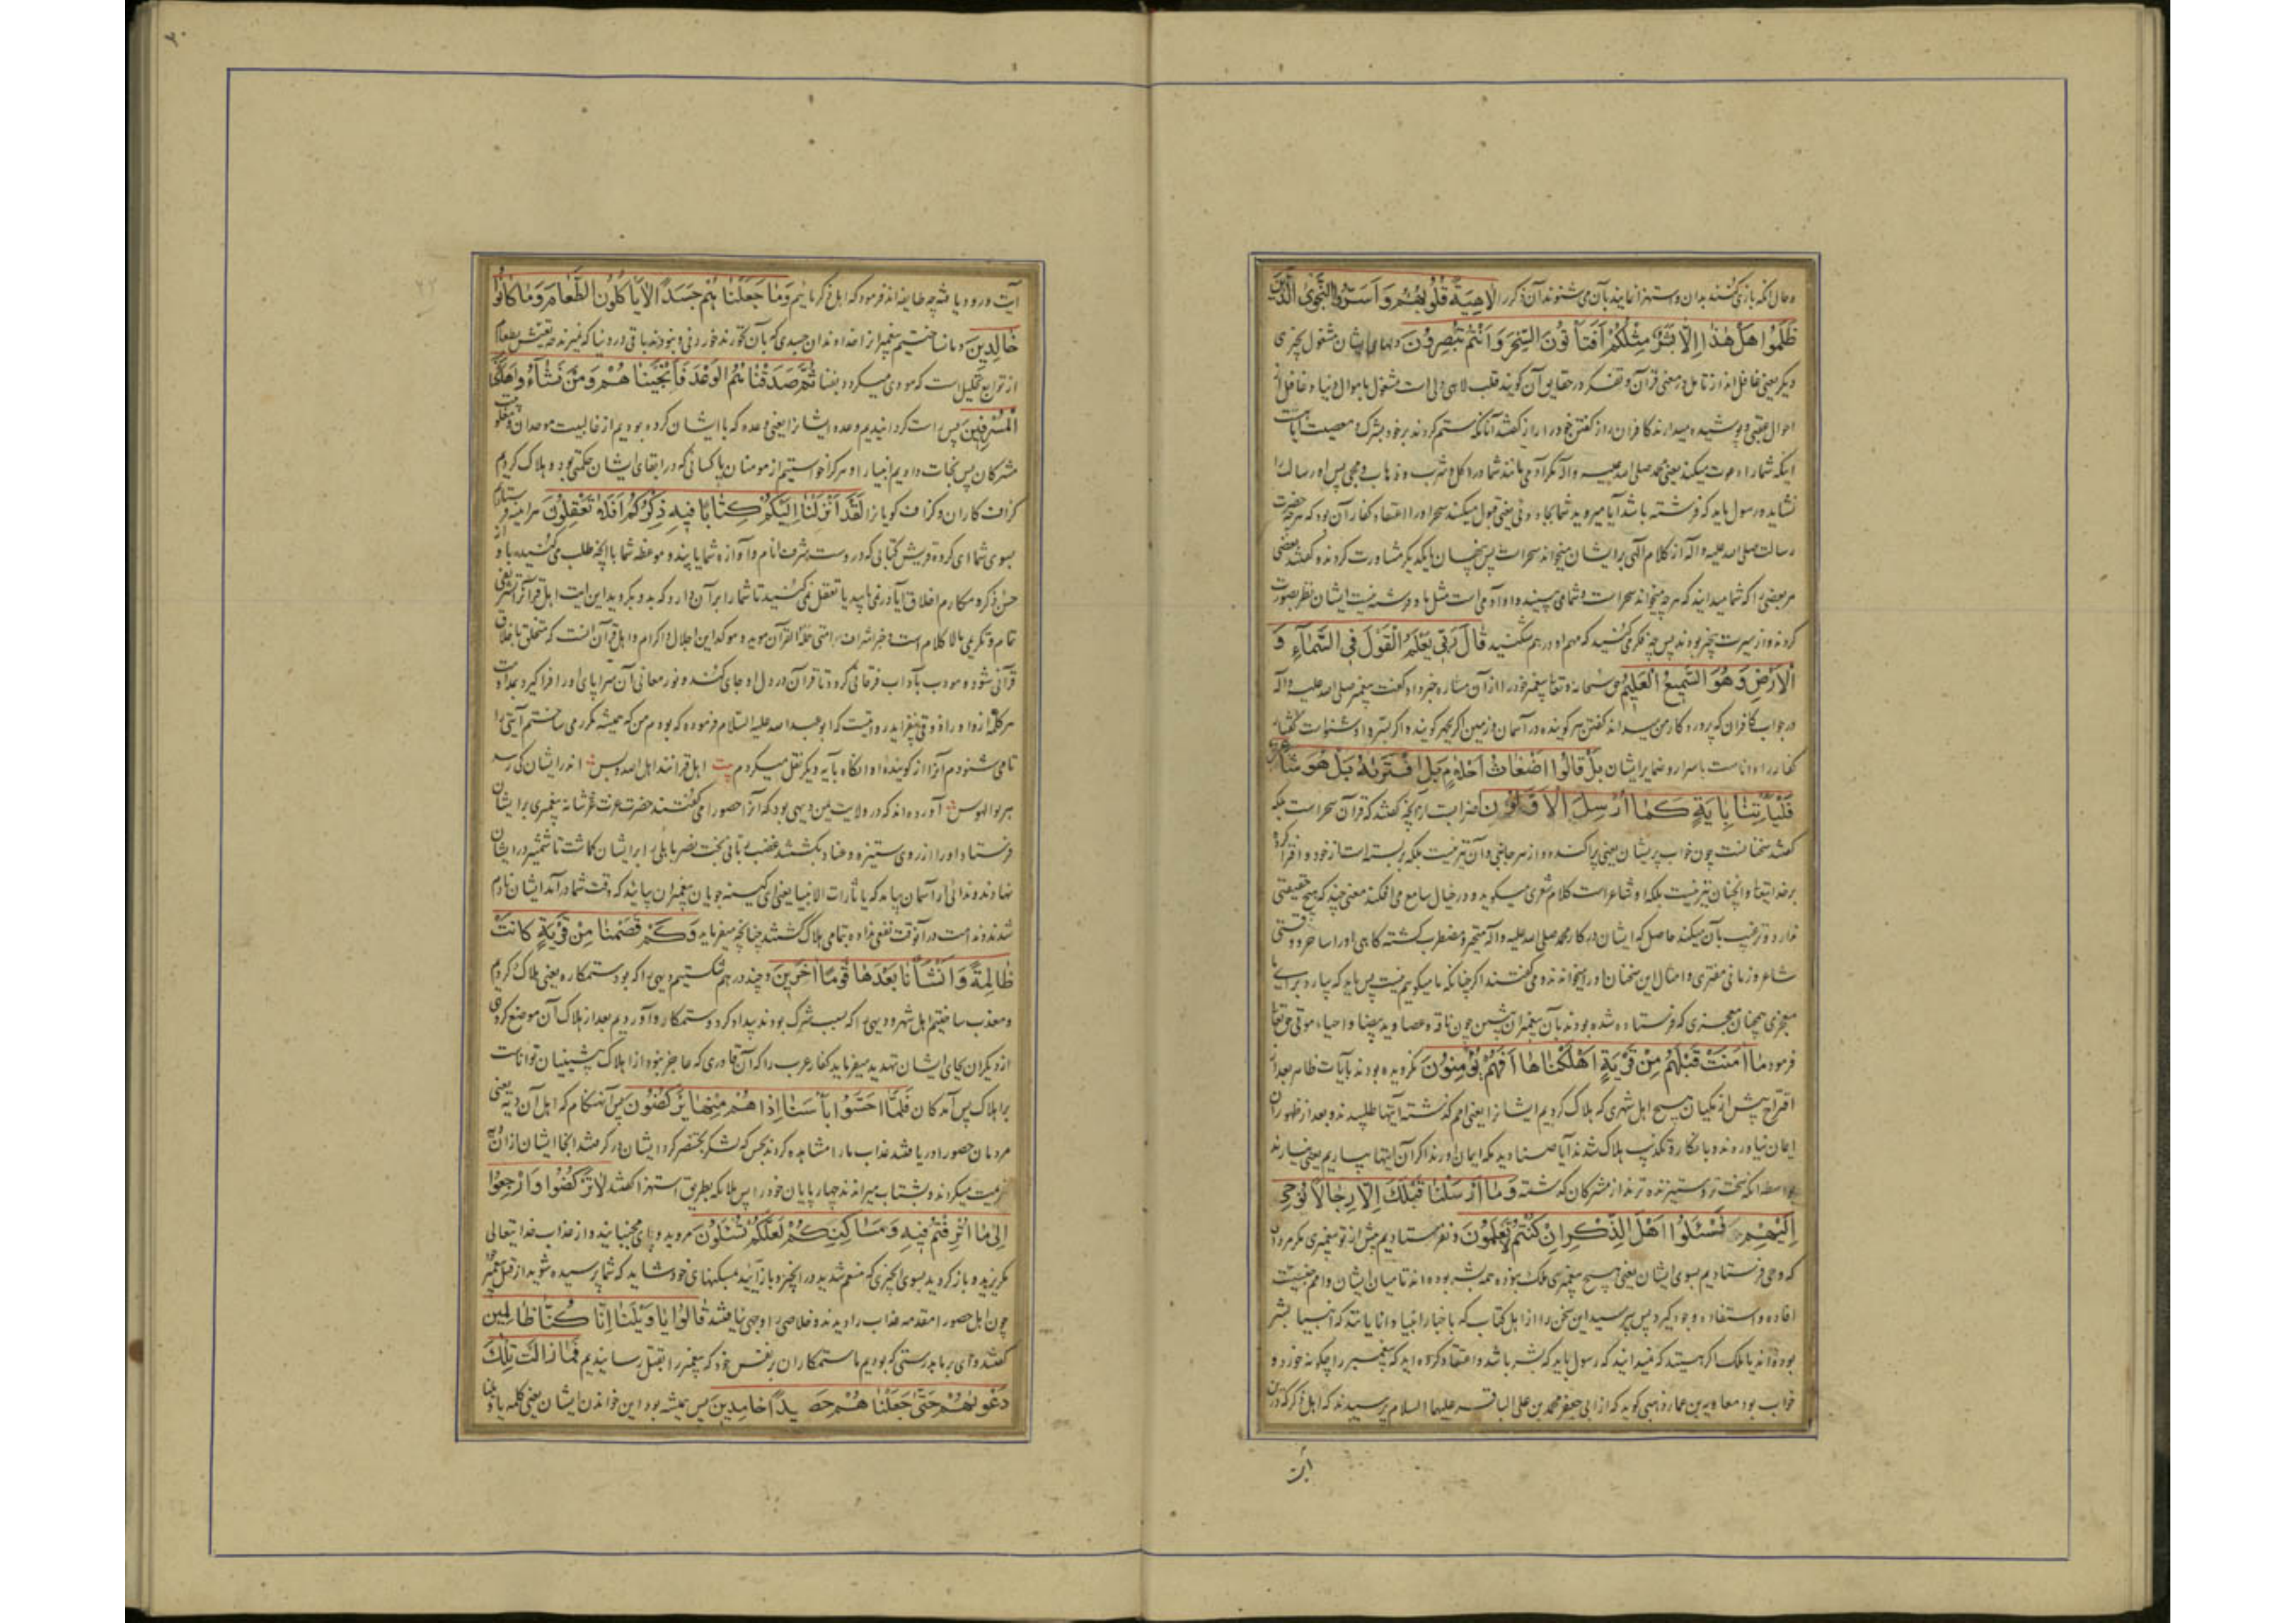 و حال آنکه بازی کنند بدان و استهزا نمایند بآن می شنوند آن ذکر را لاهِیَةً قُلُوبُهُمْ وَاَسَرُّوا النَّجْوَى الَّذِينَ
ظَلَمُوا هَلْ هٰذَا اِلَّا بَشَرٌ مِثْلُكُمْ اَفَتَأْتُونَ السِّحْرَ وَاَنْتُمْ تُبْصِرُونَ دلهای ایشان مشغول بچیزی
دیگر یعنی غافل اند از تامل در معنی قرآن و تفکر در حقایق آن گویند قلب لاهی دلی است مشغول باموال دنیا و غافل از
احوال عقبی و پوشیده میدارند کافران راز گفتن خود را راز گفتند آنانکه ستم کردند بر خود بشرک و معصیت
اینکه شما را دعوت میکند یعنی محمد صلی الله علیه و آله مگر آدمی مانند شما در اکل و شرب و ذهاب و مجی پس او رسالت را
نشاید رسول باید که فرشته باشد آیا میروید شما بجادوئی یعنی قبول میکنید سحر او را اعتقاد کفار آن بود که هرچه حضرت
رسالت صلی الله علیه و آله از کلام الهی بر ایشان میخواند سحر است پس پنهان با یکدیگر مشاورت کردند و گفتند بعضی
مر بعضی را که شما میدانید که هرچه میخواند سحر است و شما می بینید و او آدمی است مثل ما و فرشته نیست ایشان نظر بصورت
کردند و از سیرت بیخبر بودند پس چه فکر می کنید که مهم او در هم شکنید قَالَ رَبِّي يَعْلَمُ الْقَوْلَ فِي السَّمَاءِ وَ
الْاَرْضِ وَهُوَ السَّمِيعُ الْعَلِيمُ حق سبحانه و تعالی پیغمبر خود را از آن مشاوره خبر داد گفت پیغمبر صلی الله علیه و آله
در جواب کافران که پروردگار من میداند گفتن هر گوینده در آسمان و زمین اگر بجهر گوینده اگر بسر و او شنواست گفتار
کفار را و داناست باسرار و ضمایر ایشان بَلْ قَالُوا اَضْغَاثُ اَحْلَامٍ بَلِ افْتَرٰيهُ بَلْ هُوَ شَاعِرٌ
فَلْيَأْتِنَا بِاٰيَةٍ كَمَا اُرْسِلَ الْاَوَّلُونَ اضراب است از آنچه گفتند که قرآن سحر است بلکه
گفتند سخنانست چون خواب پریشان یعنی پراکنده و از هر جانبی و آن نیز نیست بلکه بربسته است از خود و افترا کرده
بر خدایتعالی و آنچنان نیز نیست بلکه او شاعر است کلام شعری میگوید و در خیال سامع می افکند معنی چند که هیچ حقیقتی
ندارد و ترغیب بآن میکند حاصل که ایشان در کار محمد صلی الله علیه و آله متحیر و مضطرب گشته گاهی او را ساحر و وقتی
شاعر و زمانی مفتری و امثال این سخنان او را میخواندند و می گفتند اگر چنانکه ما میگوییم نیست پس باید که بیارد برای ما
معجزی همچنان معجزی که فرستاده شده بودند بآن پیغمبران پیشین چون ناقه و عصا و ید بیضا و احیاء موتی حق تعالی
فرمود مَا اٰمَنَتْ قَبْلَهُمْ مِنْ قَرْيَةٍ اَهْلَكْنَاهَا اَفَهُمْ يُؤْمِنُونَ نگرویده بودند بآیات ظاهر بعد از
اقتراح پیش از مکیان هیچ اهل شهری که هلاک کردیم ایشانرا یعنی امم گذشته آیتها طلبیدند و بعد از ظهور آن
ایمان نیاوردند و بانکار و تکذیب هلاک شدند آیا صنادید مکه ایمان آورند اگر آن آیتها بیاریم یعنی نیارند
بواسطه آنکه سخت تر و ستیزنده ترند از مشرکان گذشته وَمَا اَرْسَلْنَا قَبْلَكَ اِلَّا رِجَالًا نُوحِي
اِلَيْهِمْ فَسْئَلُوا اَهْلَ الذِّكْرِ اِنْ كُنْتُمْ لَا تَعْلَمُونَ و نفرستادیم پیش از تو پیغمبری مگر مردان
که وحی فرستادیم بسوی ایشان یعنی هیچ پیغمبری ملک نبوده همه بشر بوده اند تا میان ایشان و امم جنسیت
افاده و استفاده وجود گیرد پس بپرسید این سخن را از اهل کتاب که باخبار انبیا دانایانند که انبیا بشر
بوده اند یا ملک اگر هستید که نمیدانید که رسول باید که بشر باشد و اعتقاد کرده اید که پیغمبر را چگونه خورد و
خواب بود معاویه بن عمار ذهبی گوید که از ابی جعفر محمد بن علی الباقر علیهما السلام پرسیدند که اهل ذکر که در این
آیت
آیت ورود یافته چه طایفه اند فرمود که اهل ذکر ماییم وَمَا جَعَلْنَاهُمْ جَسَدًا لَا يَأْكُلُونَ الطَّعَامَ وَمَا كَانُوا
خَالِدِينَ و ما نساختیم پیغمبران را خداوندان جسدی که بآن نخورند خوردنی و نبودند باقی در دنیا که نمیرند چه تعیش بطعام
از توابع تحلیل است که مودی میگردد بفنا ثُمَّ صَدَقْنَاهُمُ الْوَعْدَ فَاَنْجَيْنَاهُمْ وَمَنْ نَشَاءُ وَاَهْلَكْنَا
الْمُسْرِفِينَ پس راست گردانیدیم وعده ایشانرا یعنی وعده که با ایشان کرده بودیم از غالبیت موحدان و مغلوبیت
مشرکان پس نجات دادیم انبیا را و هر که را خواستیم از مومنان یا کسانی که در ابقای ایشان حکمتی بود و هلاک کردیم
گزاف کاران و گزاف گویان را لَقَدْ اَنْزَلْنَا اِلَيْكُمْ كِتَابًا فِيهِ ذِكْرُكُمْ اَفَلَا تَعْقِلُونَ هر اینه فرستادیم
بسوی شما ای گروه قریش کتابی که در وست شرف نام و آوازه شما یا پند و موعظه شما یا آنچه طلب می کنید باو از
حسن ذکر و مکارم اخلاق آیا در نمی یابید یا تعقل نمی کنید تا شما را بر آن دارد که بدو بگروید این آیت اهل قرآنرا تشریفی
تمام و تکریمی مالا کلام است و خبر اشراف امتی حملة القرآن موید و موکد این اجلال و اکرام و اهل قرآن آنست که متخلق باخلاق
قرآنی شود و مودب بآداب فرقانی گردد تا قرآن در دل او جای کند و نور معانی آن سراپای او را فرا گیرد
روایت که ابو عبد الله علیه السلام فرموده که بودم من که همیشه مکرر می ساختم آیتی را
تا می شنودم آنرا از گوینده او آنگاه بآیه دیگر نقل میکردم بیت اهل قرآنند اهل الله و بس اندر ایشان کی رسد
هر بوالهوس آورده اند که در ولایت یمن دیهی بود که آنرا حصورا می گفتند حضرت عزت عز شانه پیغمبری بر ایشان
فرستاد او را از روی ستیزه و عناد بکشتند غضب ربانی بخت نصر بابلی را بر ایشان گماشت تا شمشیر در ایشان
نهادند و ندائی از آسمان بیامد که یا ثارات الانبیا یعنی ای کینه جویان پیغمبران بیایید که وقت شما در آمد ایشان نادم
شدند و ندامت در آنوقت نفعی نداد و تمامی هلاک گشتند چنانچه میفرماید وَكَمْ قَصَمْنَا مِنْ قَرْيَةٍ كَانَتْ
ظَالِمَةً وَاَنْشَأْنَا بَعْدَهَا قَوْمًا اٰخَرِينَ و چند در هم شکستیم دیهی را که بود ستمکاره یعنی هلاک کردیم
و معذب ساختیم اهل شهر و دیهی را که بسبب شرک بودند بیدادگر و ستمکار و آوردیم بعد از هلاک آن موضع گروهی
از دیگران بجای ایشان تهدید میفرماید کفار عرب را که آن قادری که عاجز نبود از اهلاک پیشینیان تواناست
بر اهلاک پس آمدگان فَلَمَّا اَحَسُّوا بَأْسَنَا اِذَا هُمْ مِنْهَا يَرْكُضُونَ پس آنهنگام که اهل آن دیه یعنی
مردمان حصورا دریافتند عذاب ما را مشاهده کردند بحس که لشکر بختنصر گرد ایشان در گرفتند آنجا ایشان از آن دیه
هزیمت میکردند و بشتاب میراندند چهارپایان خود را پس ملائکه بطریق استهزا گفتند لَا تَرْكُضُوا وَارْجِعُوا
اِلٰى مَا اُتْرِفْتُمْ فِيهِ وَمَسَاكِنِكُمْ لَعَلَّكُمْ تُسْئَلُونَ مروید و پای مجنبانید و از عذاب خدا تعالی
مگریزید و باز گردید بسوی آنچیزی که منعم شدید در آنچیز و باز آیید بمسکنهای خود شاید که شما پرسیده شوید از قتل پیغمبر
چون اهل حصورا مقدمه عذاب را دیدند و خلاصی را وجهی نیافتند قَالُوا يَا وَيْلَنَا اِنَّا كُنَّا ظَالِمِينَ
گفتند وای بر ما بدرستی که بودیم ما ستمکاران بر نفس خود که پیغمبر را بقتل رسانیدیم فَمَا زَالَتْ تِلْكَ
دَعْوٰيهُمْ حَتّٰى جَعَلْنَاهُمْ حَصِيدًا خَامِدِينَ پس همیشه بود این خواندن ایشان یعنی کلمه یا ویلنا